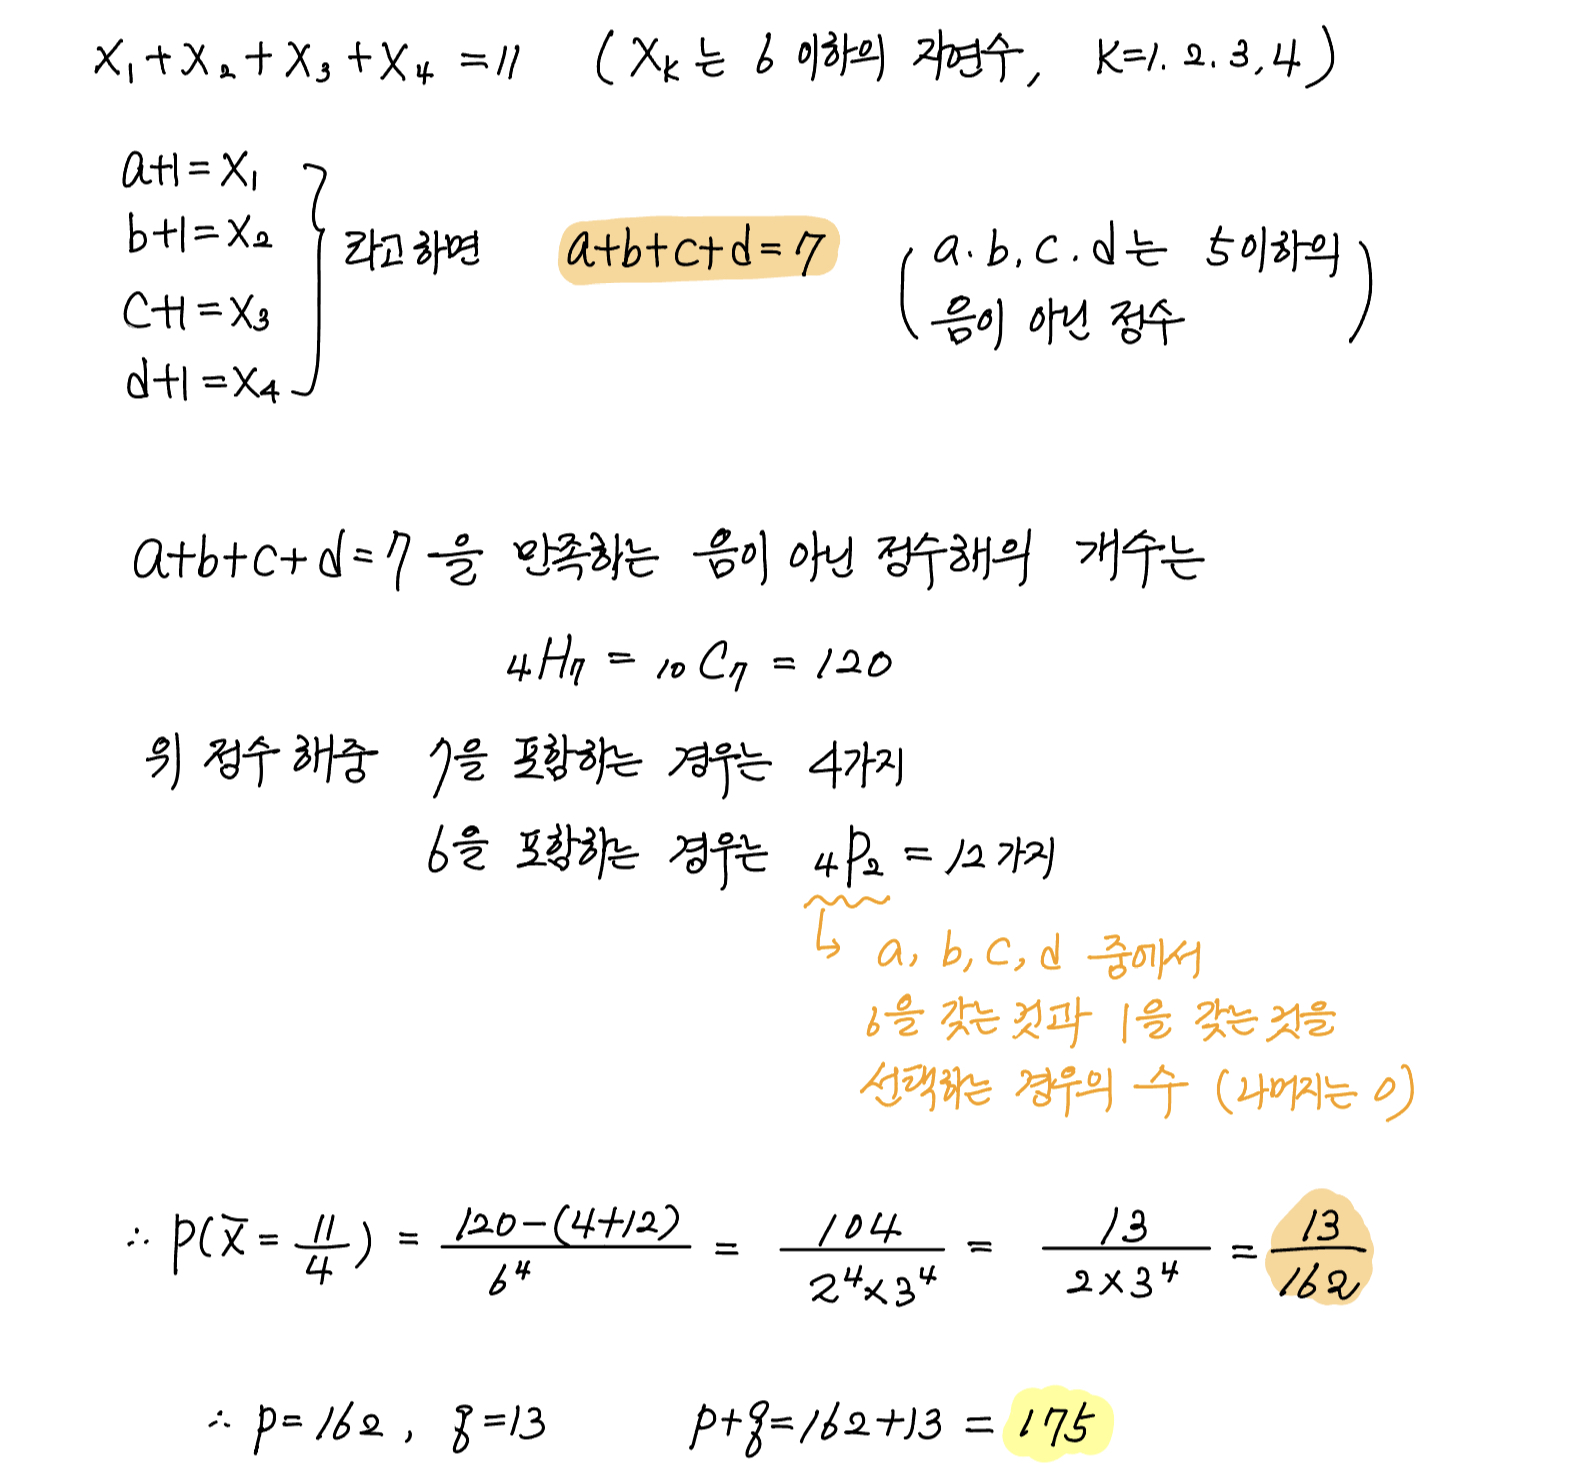 X₁+X₂+X₃+X₄ =11 (Xₖ는 6 이하의 자연수, K=1.2.3,4)
a+1=X₁
b+1=X₂
라고하면 a+b+c+d=7 (a.b,c.d는 5이하의
음이 아닌 정수)
C+1=X₃
d+1=X₄
a+b+c+d=7을 만족하는 음이 아닌 정수해의 개수는
₄H₇ = ₁₀C₇ = 120
위 정수해중 7을 포함하는 경우는 4가지
6을 포함하는 경우는 ₄P₂ = 12가지
↳ a, b, c, d 중에서
6을 갖는것과 1을 갖는것을
선택하는 경우의 수 (나머지는 0)
∴ P(X̄ = 11/4) = (120-(4+12))/6⁴ = 104/(2⁴×3⁴) = 13/(2×3⁴) = 13/162
∴ p=162, q=13 p+q=162+13 = 175